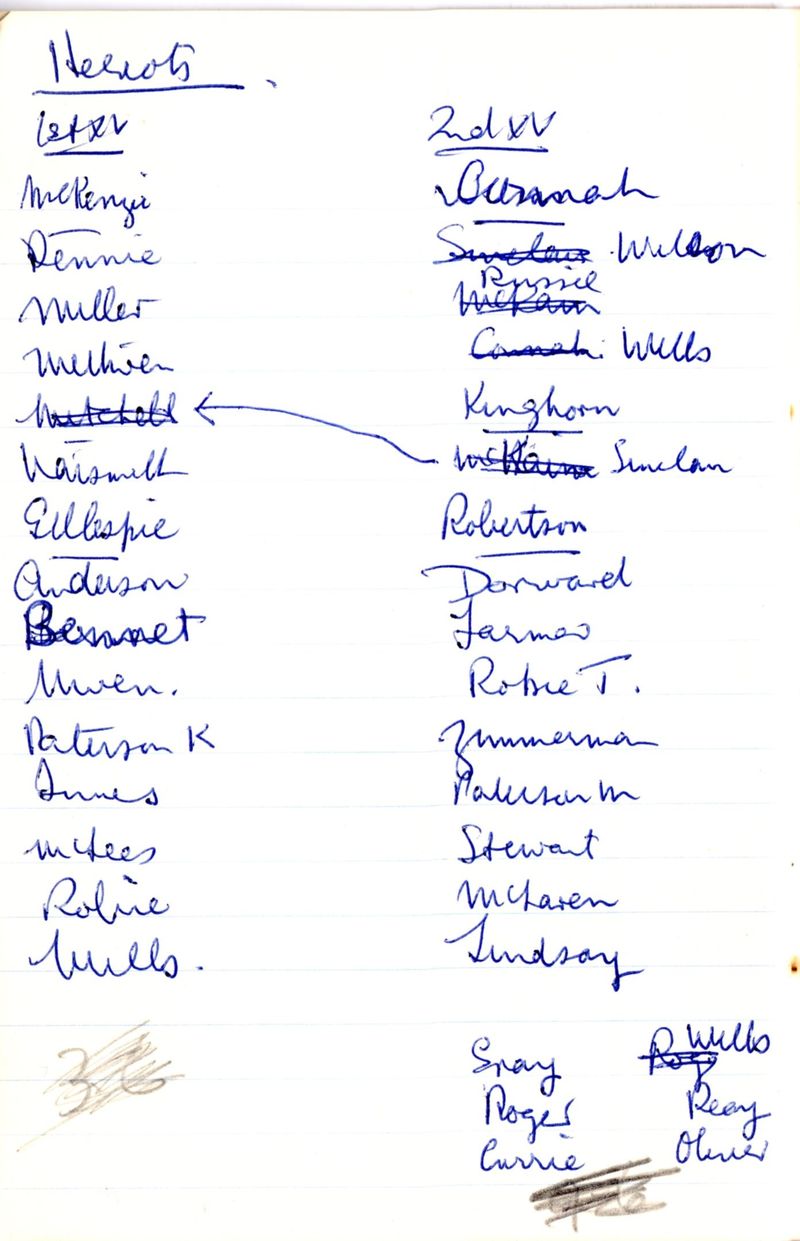 Heriots
1st XV
McKenzie
Rennie
Miller
Methven
Mitchell
Naismith
Gillespie
Anderson
Bennet
Niven.
Paterson K
Innes
McLees
Robie
Mills.
2nd XV
Sinclair Wilson
Russie
McKain
Wells
Kinghorn
McKain Sinclair
Robertson
Dorward
Farmer
Robie T.
Zimmerman
Paterson M
Stewart
McLaren
Lindsay
Gray Rog Wells
Roger Reay
Currie Oliver